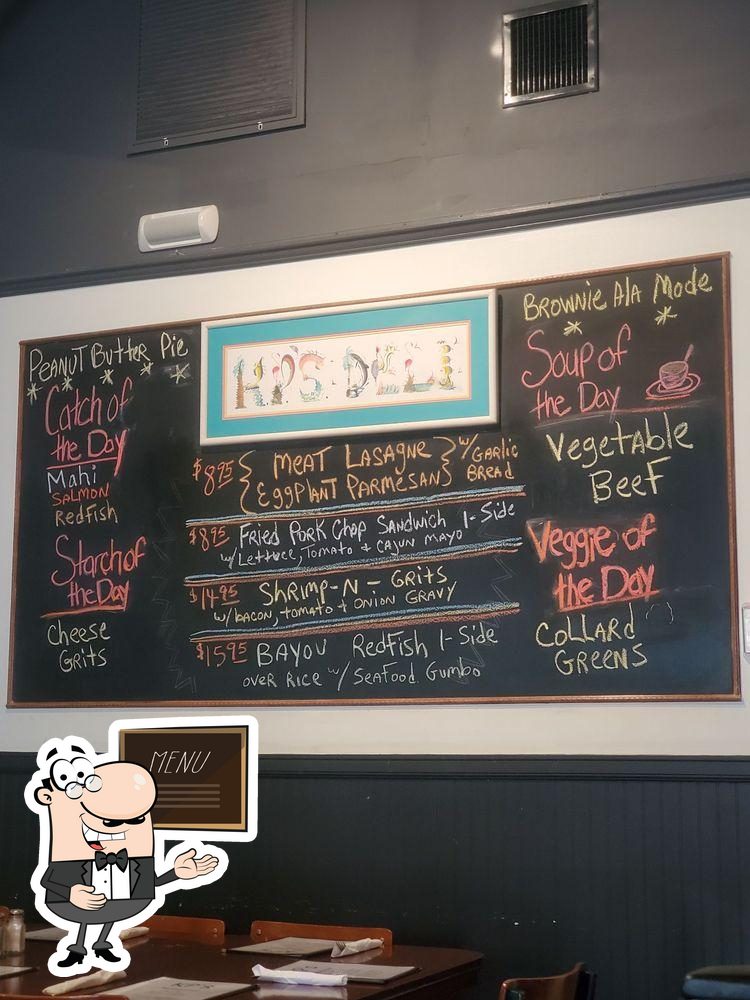 Peanut Butter Pie
Catch of
the Day
Mahi
Salmon
Redfish
Starch of
the Day
Cheese
Grits
KP'S DELI
$8.95 { Meat Lasagne } w/ Garlic
{ Eggplant Parmesan } Bread
$8.95 Fried Pork Chop Sandwich 1-Side
w/ Lettuce, Tomato + Cajun Mayo
$14.95 Shrimp-N-Grits
w/ bacon, tomato + onion gravy
$15.95 Bayou Redfish 1-Side
over Rice w/ Seafood Gumbo
Brownie Ala Mode
Soup of
the Day
Vegetable
Beef
Veggie of
the Day
Collard
Greens
MENU
KP'S